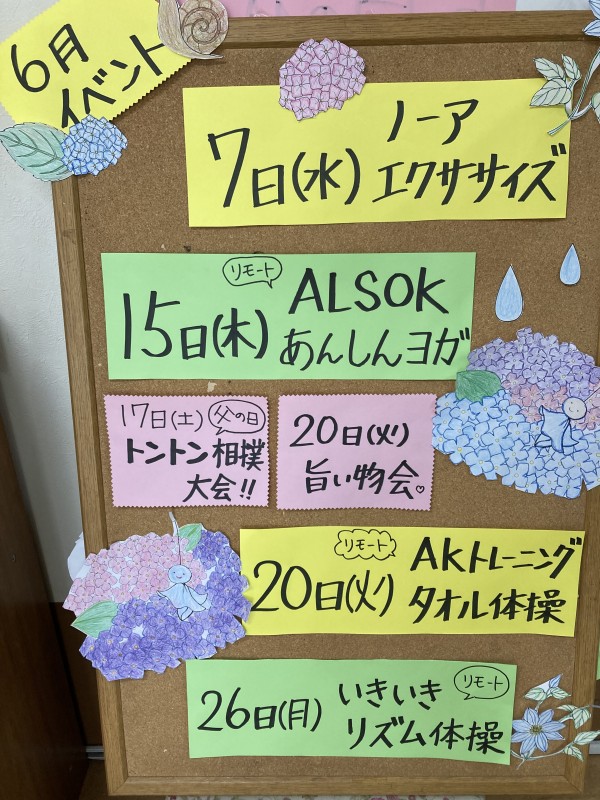 6月
イベント
7日(水)
ノーア
エクササイズ
リモート
15日(木)
ALSOK
あんしんヨガ
17日(土) 父の日
トントン相撲
大会!!
20日(火)
旨い物会♡
リモート
20日(火)
AKトレーニング
タオル体操
26日(月)
いきいき
リズム体操
リモート